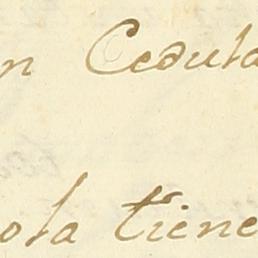 n Cedula
ola tiene